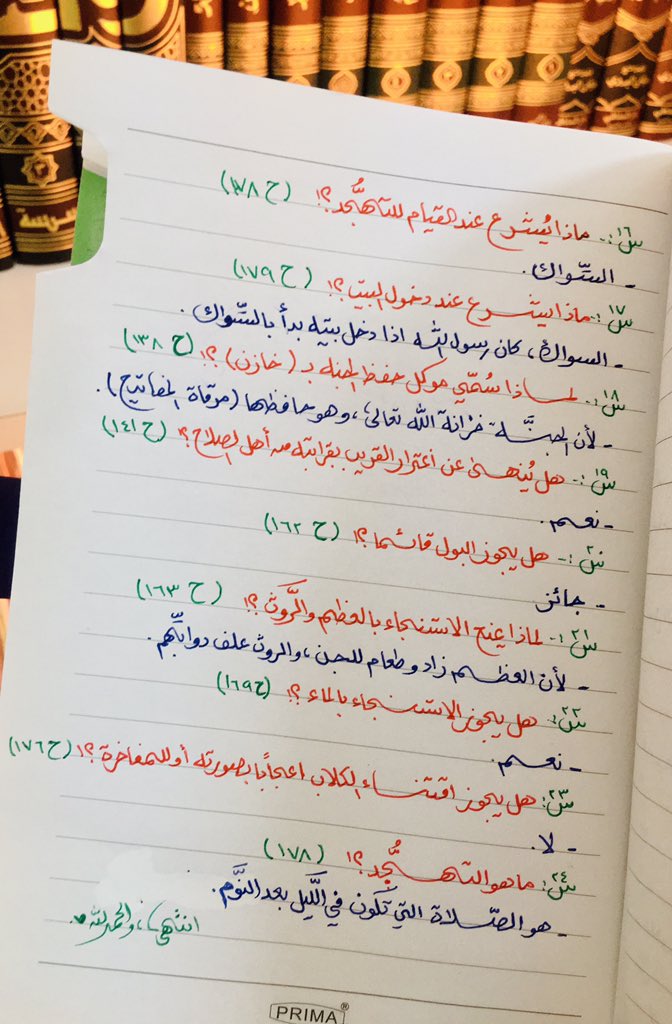 س١٦:- ماذا يُشرع عند القيام للتهجُّد؟! (ح ١٧٨)
- السِّواك.
س١٧:- ماذا يشرع عند دخول البيت؟! (ح ١٧٩)
- السواك، كان رسول الله اذا دخل بيته بدأ بالسِّواك.
س١٨:- لماذا سُمِّي موكل حفظ الجنة بـ (خازن)؟! (ح ١٣٨)
- لأن الجنَّة خزانة الله تعالى، وهو حافظها (مرقاة المفاتيح).
س١٩:- هل يُنهى عن اغترار القريب بقرابته من أهل الصلاح؟! (ح ١٤١)
- نعم.
س٢٠:- هل يجوز البول قائما؟! (ح ١٦٢)
- جائز
س٢١:- لماذا يمنع الاستنجاء بالعظم والرَّوث؟! (ح ١٦٣)
- لأن العظم زاد وطعام للجن، والروث علف دوابِّهم.
س٢٢: هل يجوز الاستنجاء بالماء؟! (ح ١٦٩)
- نعم.
س٢٣: هل يجوز اقتناء الكلاب اعجابًا بصورته أو للمفاخرة؟! (ح ١٧٦)
- لا.
س٢٤: ما هو التهجُّد؟! (١٧٨)
- هو الصَّلاة التي تَكون في اللَّيل بعد النَّوم.
انتهى، والحمد لله.
PRIMA®